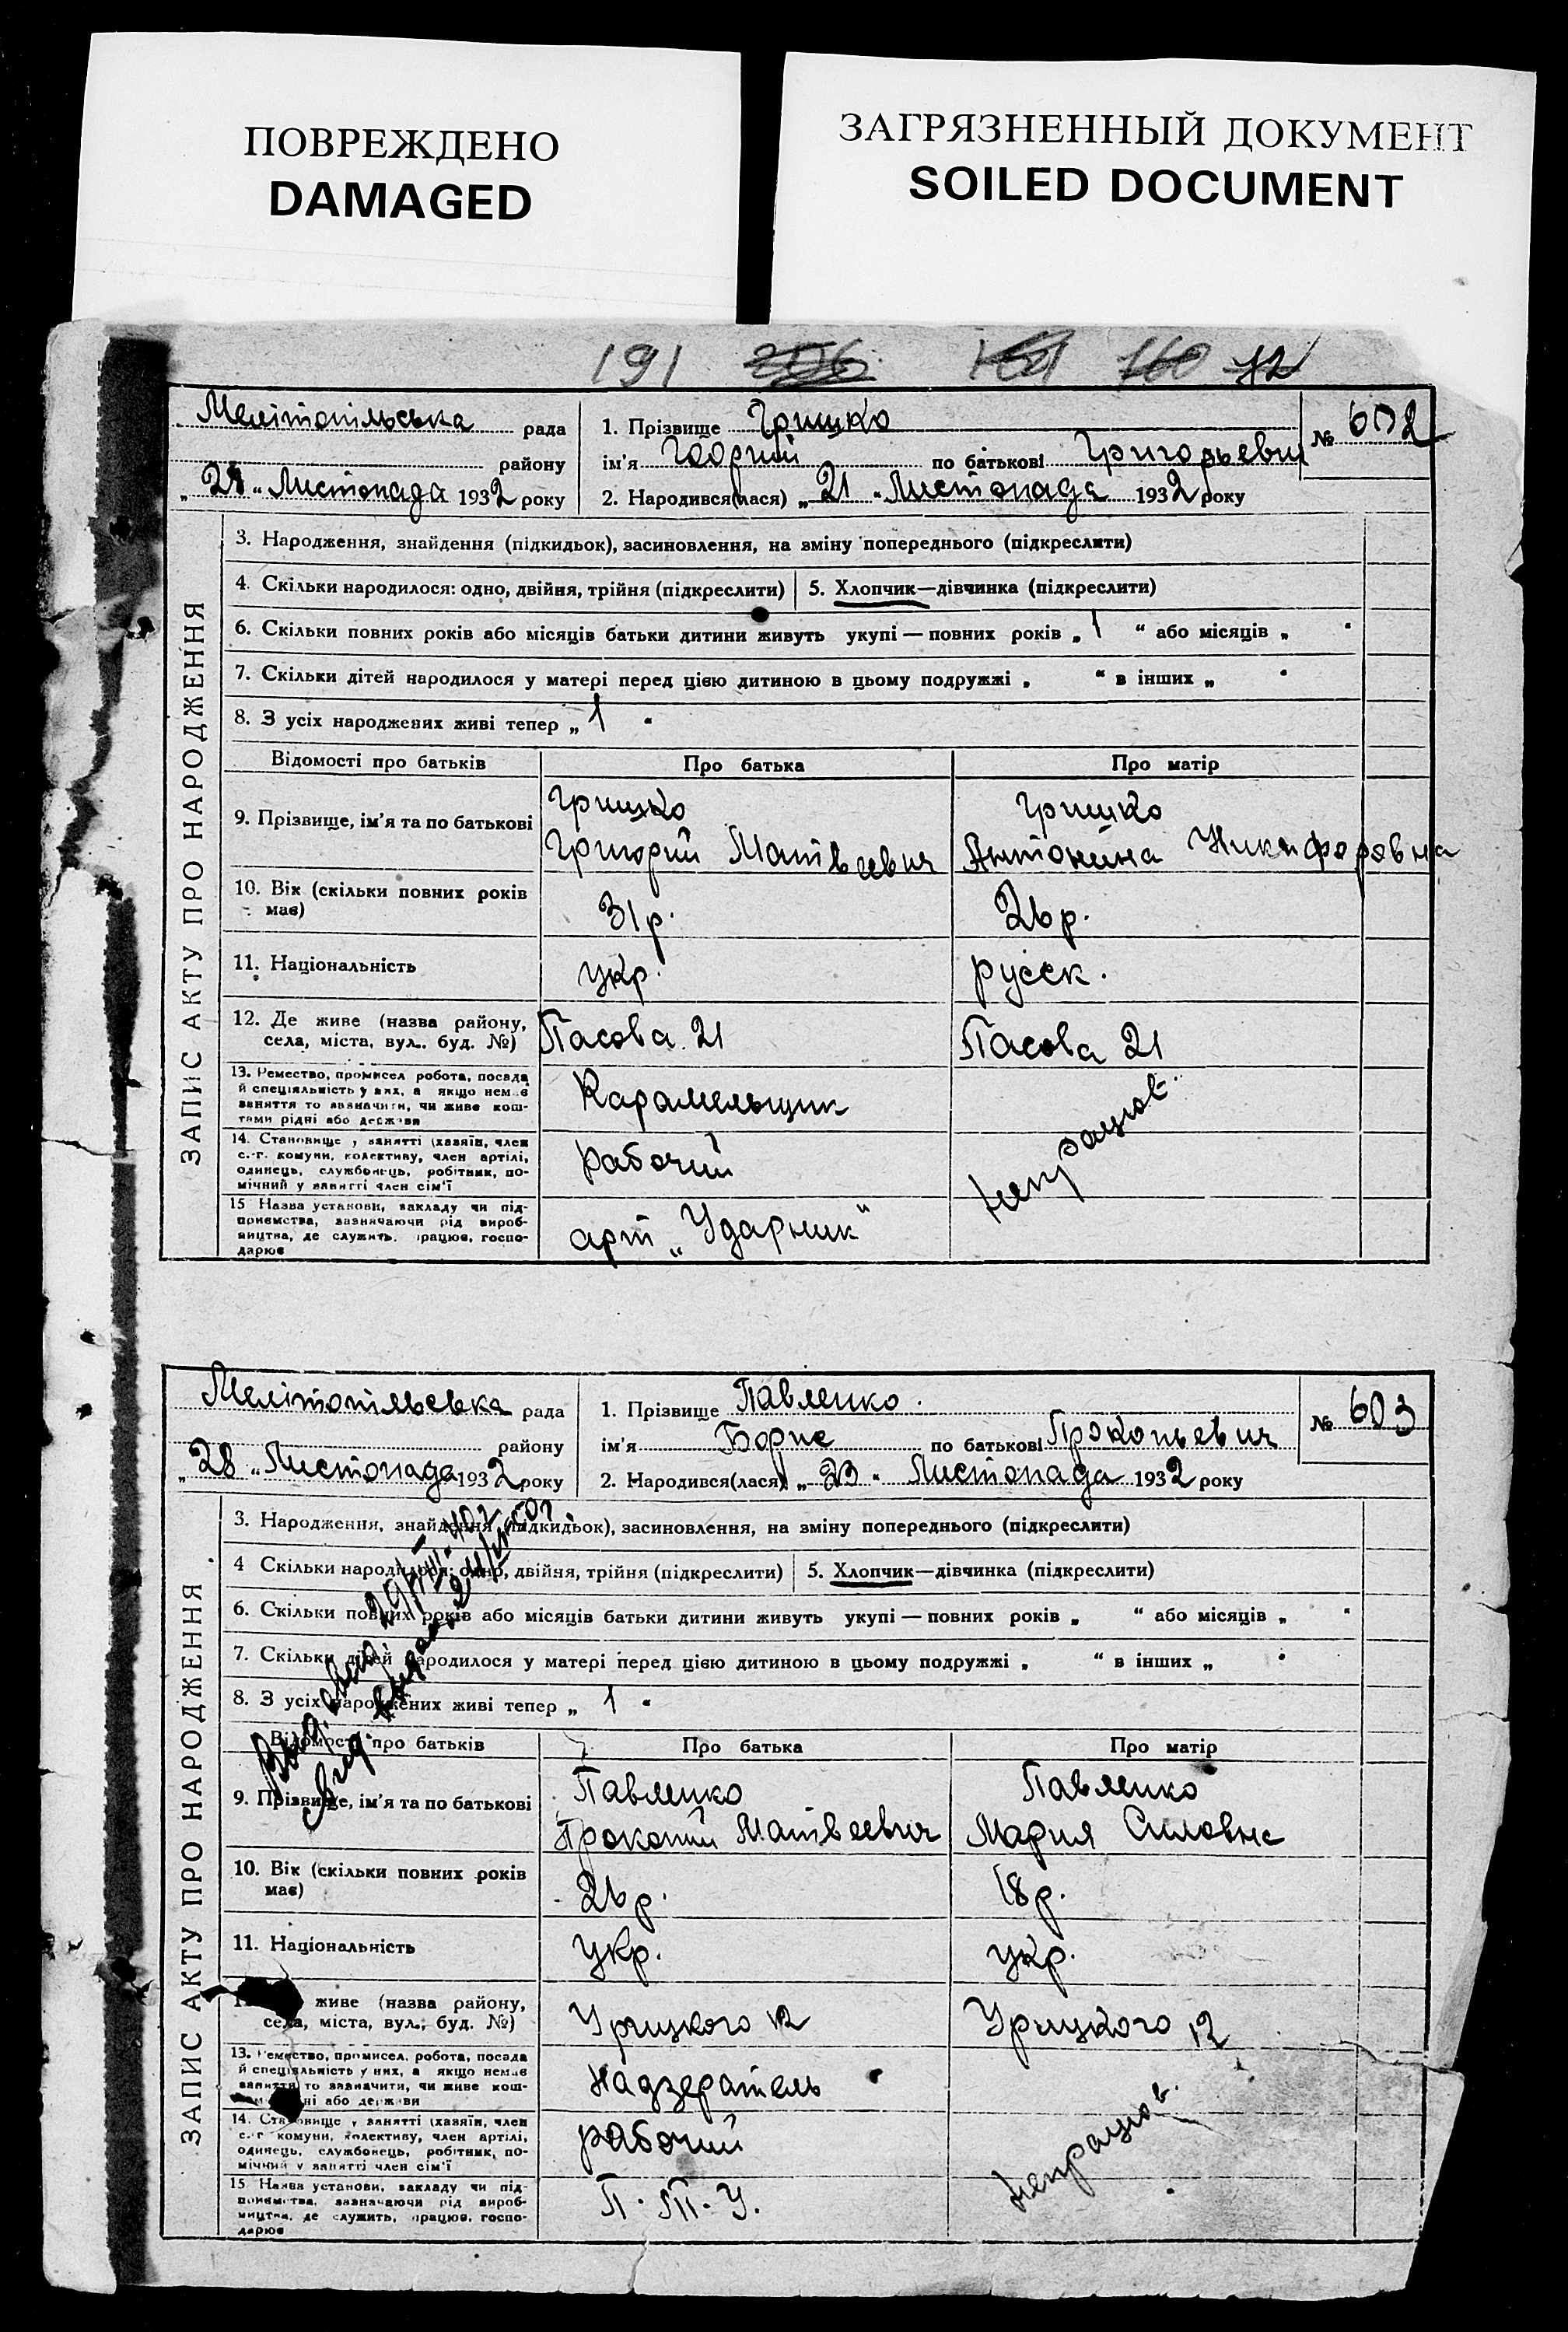 ПОВРЕЖДЕНО
DAMAGED
ЗАГРЯЗНЕННЫЙ ДОКУМЕНТ
SOILED DOCUMENT
191 72
ЗАПИС АКТУ ПРО НАРОДЖЕННЯ
Мелітопільська рада
району
„28“ Листопада 1932 року
1. Прізвище Гришко
ім'я Георгий по батькові Григорьевич
2. Народився(лася) „21“ Листопада 1932 року
№ 602
3. Народження, знайдення (підкидьок), засиновлення, на зміну попереднього (підкреслити)
4. Скільки народилося: одно, двійня, трійня (підкреслити) 5. Хлопчик—дівчинка (підкреслити)
6. Скільки повних років або місяців батьки дитини живуть укупі — повних років „ 1 “ або місяців „ “
7. Скільки дітей народилося у матері перед цією дитиною в цьому подружжі „ “ в інших „ “
8. З усіх народжених живі тепер „ 1 “
Відомості про батьків Про батька Про матір
9. Прізвище, ім'я та по батькові
Гришко
Григорий Матвеевич
Гришко
Антонина Никифоровна
10. Вік (скільки повних років має)
31р. 26р.
11. Національність укр. русск.
12. Де живе (назва району,
села, міста, вул., буд. №)
Пасова 21 Пасова 21
13. Ремество, промисел робота, посада
й спеціяльність у них, а якщо немає
заняття то зазначити, чи живе кош-
тами рідні або держави
Карамельщик
14. Становище у занятті (хазяїн, член
с.-г. комуни, колективу, член артілі,
одинець, службовець, робітник, по-
мічний у занятті член сім'ї
рабочий
непрацює.
15 Назва установи, закладу чи під-
приємства, зазначаючи рід вироб-
ництва, де служить, працює, госпо-
дарює
арт „Ударник“
ЗАПИС АКТУ ПРО НАРОДЖЕННЯ
Мелітопільська рада
району
„28“ Листопада 1932 року
1. Прізвище Павленко.
ім'я Борис по батькові Прокопьевич
2. Народився(лася) „23“ Листопада 1932 року
№ 603
3. Народження, знайдення (підкидьок), засиновлення, на зміну попереднього (підкреслити)
4 Скільки народилося: одно, двійня, трійня (підкреслити) 5. Хлопчик—дівчинка (підкреслити)
6. Скільки повних років або місяців батьки дитини живуть укупі — повних років „ “ або місяців „ “
7. Скільки дітей народилося у матері перед цією дитиною в цьому подружжі „ “ в інших „ “
8. З усіх народжених живі тепер „ 1 “
Відомості про батьків Про батька Про матір
9. Прізвище, ім'я та по батькові
Павленко
Прокопий Матвеевич
Павленко
Мария Силовне
10. Вік (скільки повних років має)
26р. 18р.
11. Національність укр. укр.
живе (назва району,
села, міста, вул., буд. №)
Урицкого 12 Урицкого 12
13. Ремество, промисел, робота, посада
й спеціяльність у них, а якщо немає
заняття то зазначити, чи живе кош-
ні або держави
Надзератель
14. Становище у занятті (хазяїн, член
с.-г комуни, колективу, член артілі,
одинець, службовець, робітник, по-
мічний у занятті член сім'ї
рабочий
непрацює.
15 Назва установи, закладу чи під-
приємства, зазначаючи рід вироб-
ництва, де служить, працює, госпо-
дарює